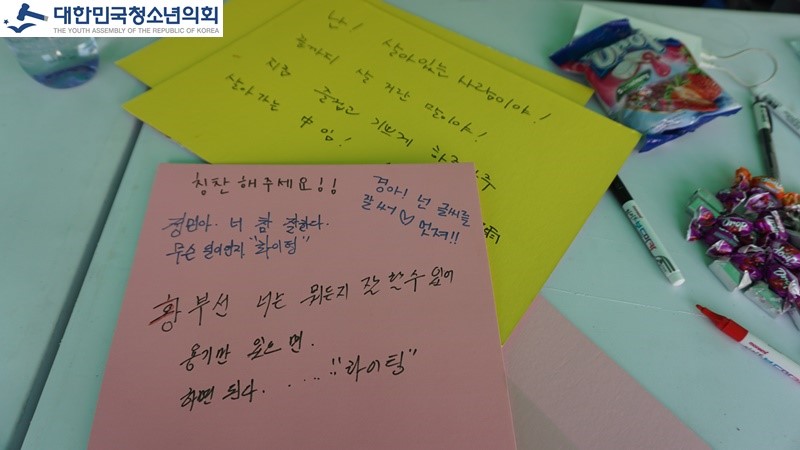 대한민국청소년의회
THE YOUTH ASSEMBLY OF THE REPUBLIC OF KOREA
난! 살아있는 사람이야!
끝까지 살 거란 말이야!
지금 즐겁고 기쁘게 하루
살아가는 中 임!
칭찬 해주세요!!
경아! 넌 글씨를
잘써♡ 멋져!!
정민아. 너 참 잘한다.
무슨 일이던지 "화이팅"
황부선 너는 뭐든지 잘 할수 있어
용기만 있으면.
하면 된다. ..... "화이팅"